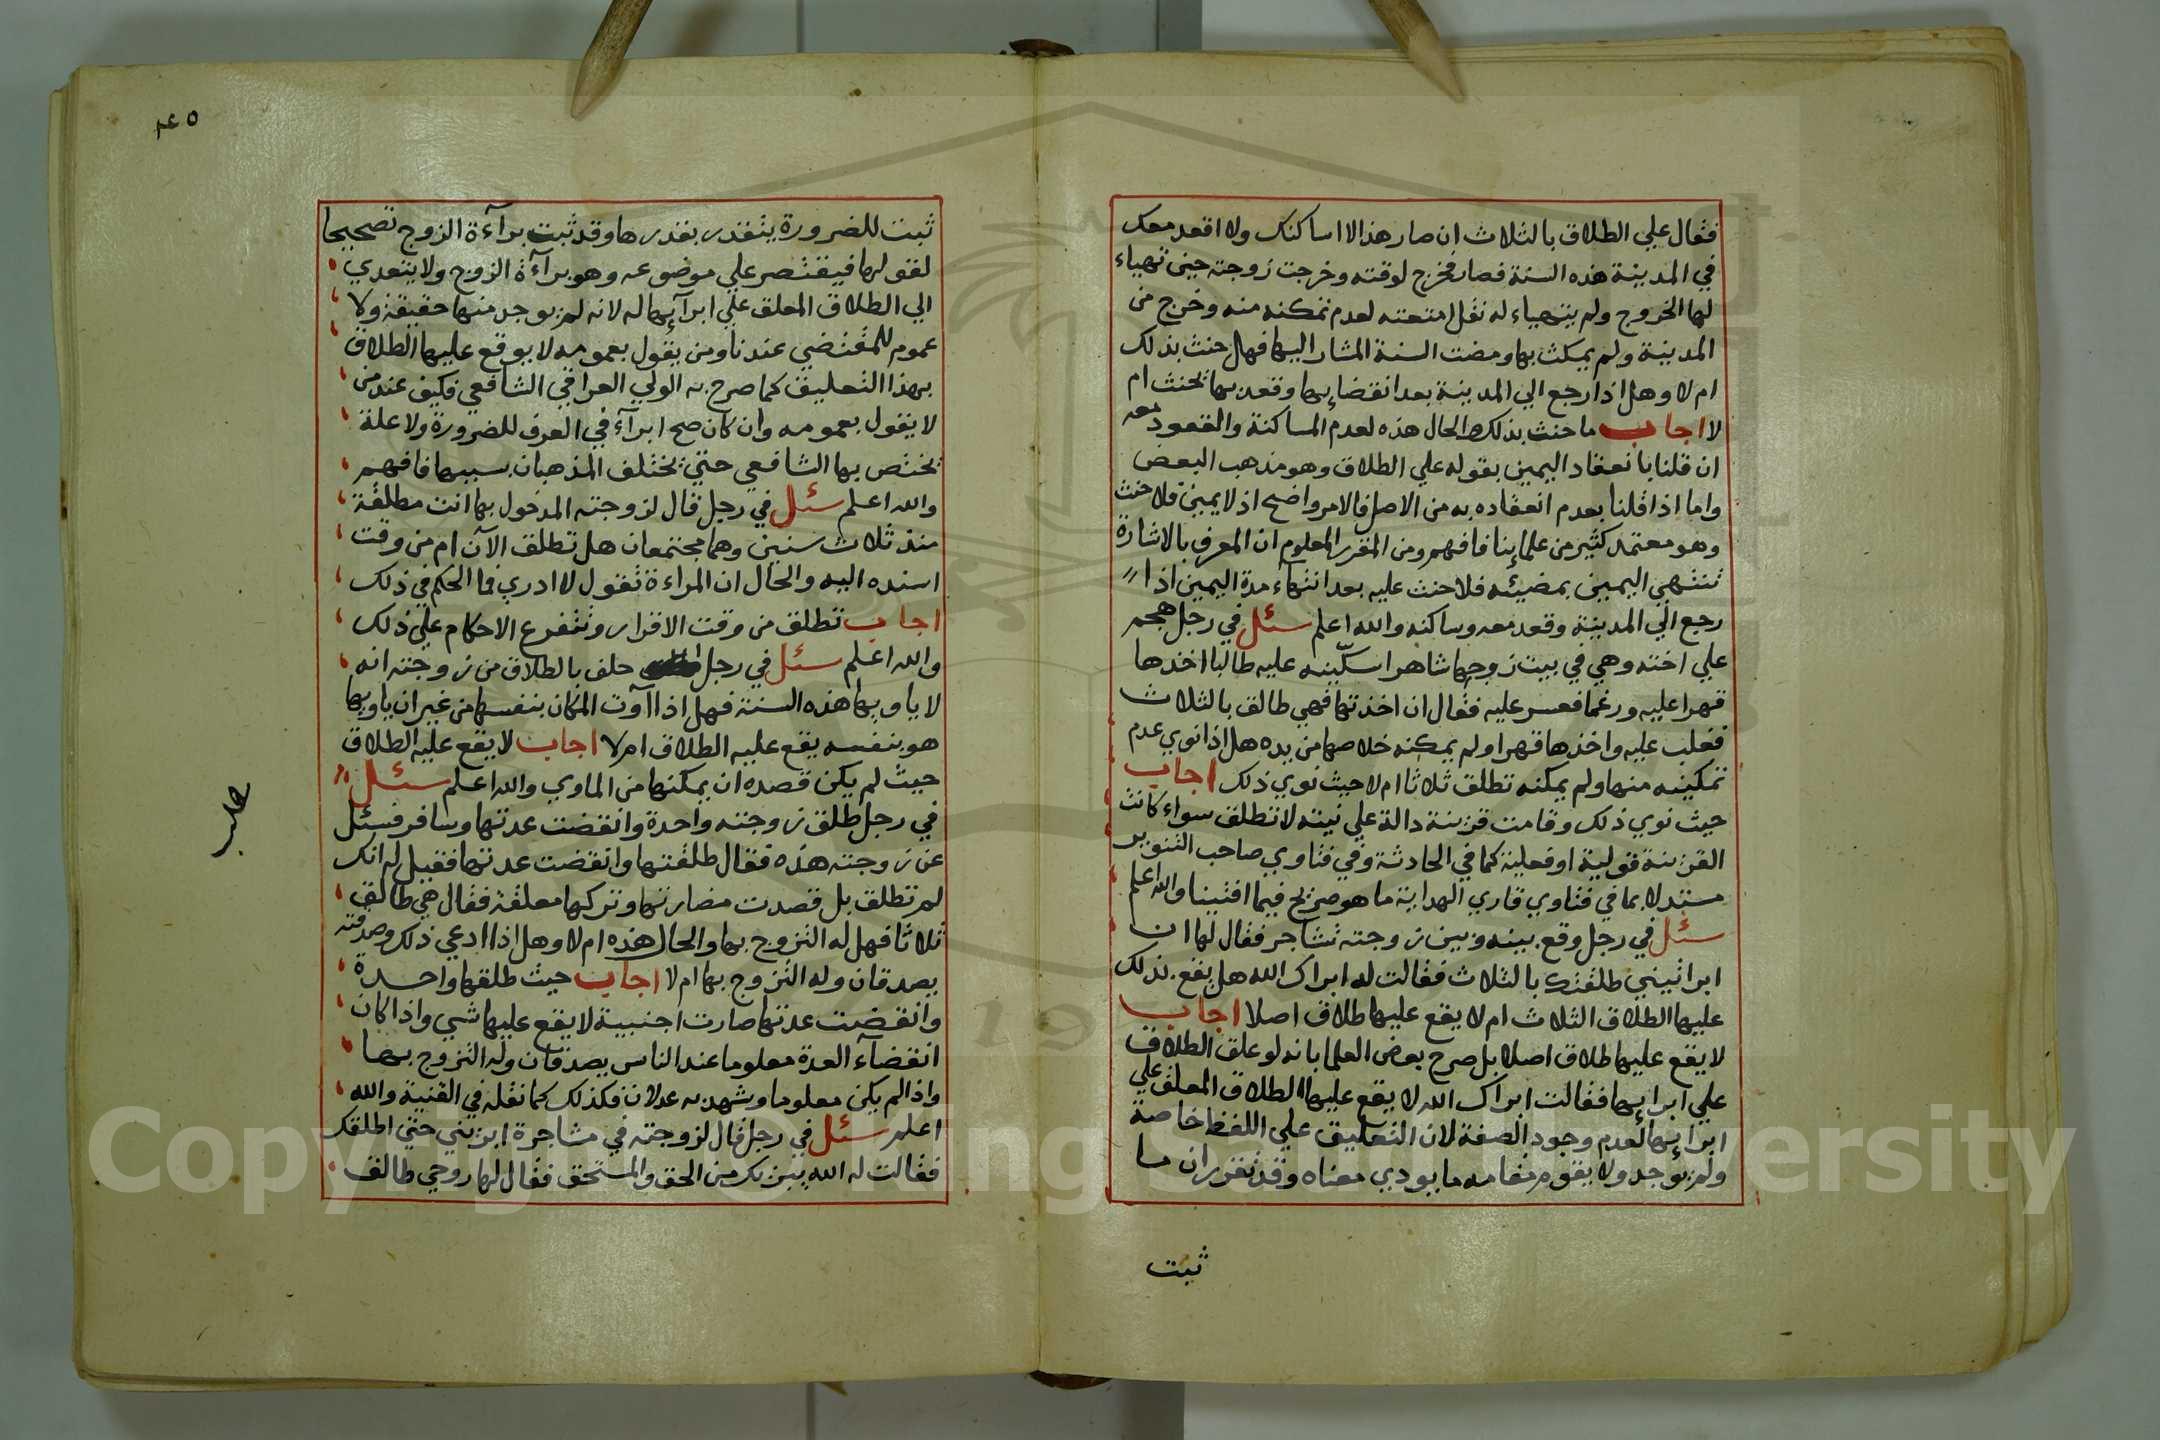 فقال علي الطلاق بالثلاث ان صار هذا لا اساكنك ولا اقعد معك
في المدينة هذه السنة فصار فخرج لوقته وخرجت زوجته حين تهياء
لها الخروج ولم يتهياء له نقل امتعته لعدم تمكنه منه وخرج من
المدينة ولم يمكث بها ومضت السنة المشار اليها فهل حنث بذلك
ام لا وهل اذا رجع الي المدينة بعد انقضايها وقعد بها يحنث ام
لا اجاب ما حنث بذلك والحال هذه لعدم المساكنة والقعود معه
ان قلنا بانعقاد اليمين بقوله علي الطلاق وهو مذهب البعض
واما اذا قلنا بعدم انعقاده به من الاصل فالامر واضح اذ لا يمين فلا حنث
وهو معتمد كثير من علماينا فافهم ومن المقرر المعلوم ان المعرف بالاشارة
تنتهي اليمين بمضيئه فلا حنث عليه بعد انتهاء مدة اليمين اذا
رجع الي المدينة وقعد معه وساكنه والله اعلم سئل في رجل هجم
علي اخته وهي في بيت زوجها شاهرا سكينه عليه طالبا اخذها
قهرا عليه ورغما فعسر عليه فقال ان اخذتها فهي طالق بالثلاث
فغلب عليه واخذها قهرا ولم يمكنه خلاصها من يده هل اذا نوي عدم
تمكينه منها ولم يمكنه تطلق ثلاثا ام لا حيث نوي ذلك اجاب
حيث نوي ذلك وقامت قرينة دالة علي نيته لا تطلق سواء كانت
القرينة قولية او فعلية كما في الحادثة وفي فتاوي صاحب التنوير
مستدلا بما في فتاوي قاري الهداية ما هو صريح فيما افتينا والله اعلم
سئل في رجل وقع بينه وبين زوجته تشاجر فقال لها ان
ابراتيني طلقتك بالثلاث فقالت له ابراك الله هل يقع بذلك
عليها الطلاق الثلاث ام لا يقع عليها طلاق اصلا اجاب
لا يقع عليها طلاق اصلا بل صرح بعض العلما بانه لو علق الطلاق
علي ابرايها فقالت ابراك الله لا يقع عليها الطلاق المعلق علي
ابرايها لعدم وجود الصفة لان التعليق علي اللفظ خاصة
ولم يوجد ولا يقوم مقامه ما يودي معناه وقد تقرر ان ما
ثبت
١٤٥
ثبت للضرورة يتقدر بقدرها وقد ثبت براءة الزوج تصحيحا
لقولها فيقتصر علي موضوعه وهو براءة الزوج ولا يتعدي
الي الطلاق المعلق علي ابرآيها له لانه لم يوجد منها حقيقة ولا
عموم للمقتضي عندنا ومن يقول بعمومه لا يوقع عليها الطلاق
بهذا التعليق كما صرح به الولي العراقي الشافعي فكيف عند من
لا يقول بعمومه وان كان صح ابرآء في العرف للضرورة ولا علة
يختص بها الشافعي حتي يختلف المذهبان بسببها فافهم
والله اعلم سئل في رجل قال لزوجته المدخول بها انت مطلقة
منذ ثلاث سنين وهما مجتمعان هل تطلق الآن ام من وقت
اسنده اليه والحال ان المراءة تقول لا ادري فما الحكم في ذلك
اجاب تطلق من وقت الاقرار وتتفرع الاحكام علي ذلك
والله اعلم سئل في رجل حلف بالطلاق من زوجته انه
لا ياويها هذه السنة فهل اذا آوت المكان بنفسها من غير ان ياويها
هو بنفسه يقع عليه الطلاق ام لا اجاب لا يقع عليه الطلاق
حيث لم يكن قصده ان يمكنها من الماوي والله اعلم سئل
في رجل طلق زوجته واحدة وانقضت عدتها وسافر فسئل
عن زوجته هذه فقال طلقتها وانقضت عدتها فقيل له انك
لم تطلق بل قصدت مضارتها وتركها معلقة فقال هي طالق
ثلاثا فهل له التزوج بها والحال هذه ام لا وهل اذا ادعي ذلك وصدقته
يصدقان وله التزوج بها ام لا اجاب حيث طلقها واحدة
وانقضت عدتها صارت اجنبية لا يقع عليها شي واذا كان
انقضآء العدة معلوما عند الناس يصدقان وله التزوج بها
واذا لم يكن معلوما وشهد به عدلان فكذلك كما نقله في القنية والله
اعلم سئل في رجل قال لزوجته في مشاجرة ابريني حتي اطلقك
فقالت له الله يبريك من الحق والمستحق فقال لها روحي طالق
مطلب
Copyright © King Saud University